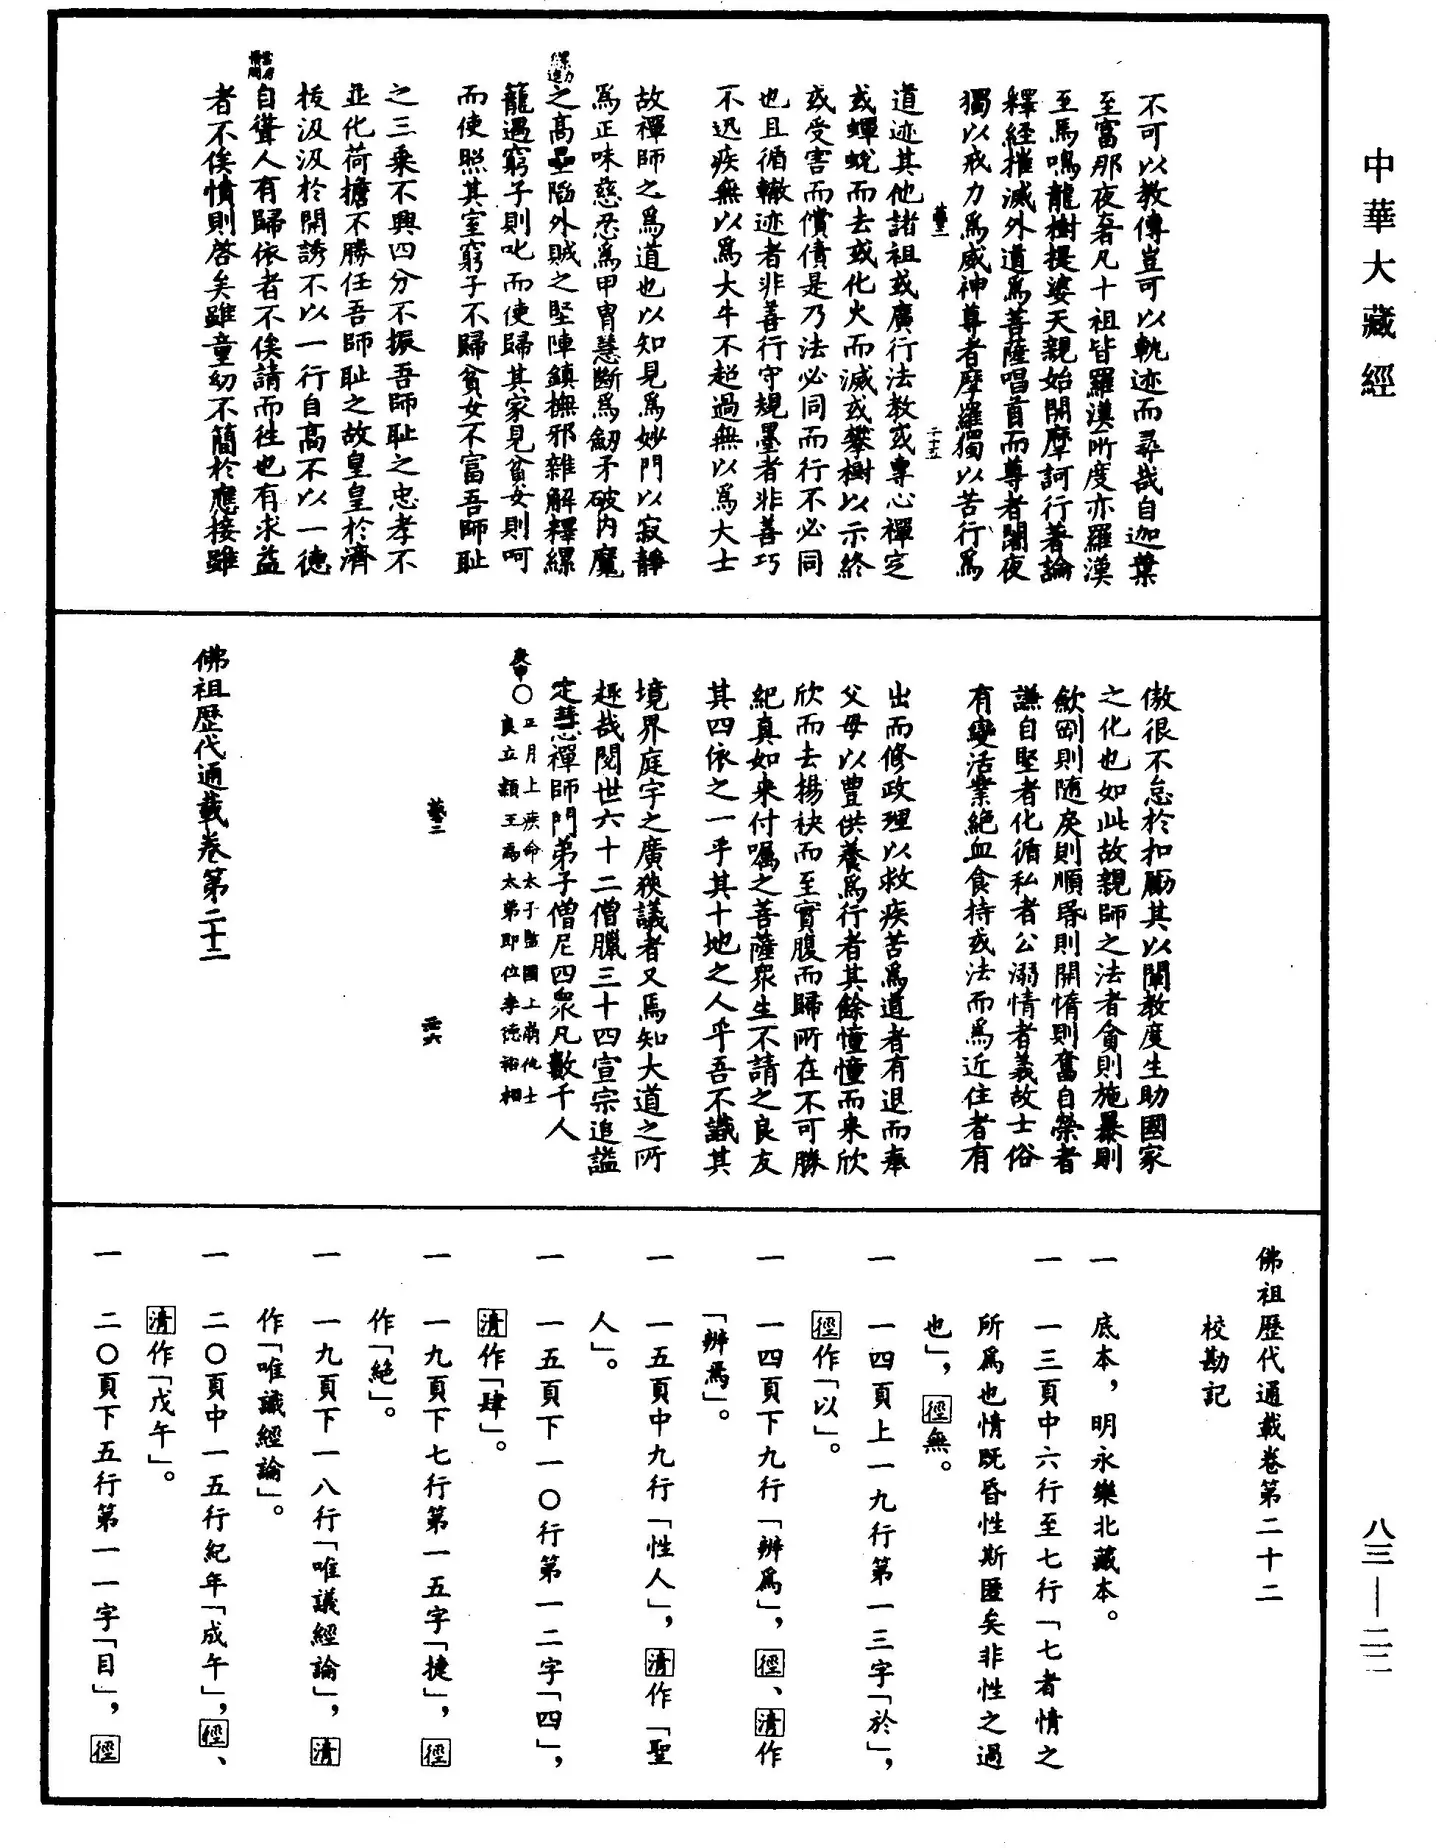 中華大藏經
不可以教傳豈可以軌迹而尋哉自迦葉
至富那夜奢凡十祖皆羅漢所度亦羅漢
至馬鳴龍樹提婆天親始開摩訶行著論
釋經摧滅外道爲菩薩唱首而尊者闍夜
獨以戒力爲威神尊者摩羅獨以苦行爲
道迹其他諸祖或廣行法教或專心禪定
或蟬蛻而去或化火而滅或攀樹以示終
或受害而償債是乃法必同而行不必同
也且循轍迹者非善行守規墨者非善巧
不迅疾無以爲大牛不超過無以爲大士
故禪師之爲道也以知見爲妙門以寂靜
爲正味慈忍爲甲冑慧斷爲劒矛破内魔
之高壘陷外賊之堅陣鎮撫邪雜解釋縲
籠遇窮子則叱而使歸其家見貧女則呵
而使照其室窮子不歸貧女不富吾師耻
之三乘不興四分不振吾師耻之忠孝不
並化荷擔不勝任吾師耻之故皇皇於濟
拔汲汲於開誘不以一行自高不以一德
自聳人有歸依者不俟請而往也有求益
者不俟憤則啓矣雖童幼不簡於應接雖
傲很不怠於扣勵其以闡教度生助國家
之化也如此故親師之法者貪則施暴則
歛剛則隨戾則順昏則開惰則奮自榮者
謙自堅者化循私者公溺情者義故士俗
有變活業絶血食持或法而爲近住者有
出而修政理以救疾苦爲道者有退而奉
父母以豐供養爲行者其餘憧憧而來欣
欣而去揚袂而至實腹而歸所在不可勝
紀真如來付囑之菩薩衆生不請之良友
其四依之一乎其十地之人乎吾不識其
境界庭宇之廣狹議者又焉知大道之所
趣哉閱世六十二僧臘三十四宣宗追謚
定慧禪師門弟子僧尼四衆凡數千人
庚申〇正月上疾命太子監國上崩仇士
良立穎王爲太弟即位李德裕相
佛祖歷代通載卷第二十二
佛祖歷代通載卷第二十二
校勘記
一 底本，明永樂北藏本。
一 一三頁中六行至七行「七者情之
所爲也情旣昏性斯匿矣非性之過
也」，徑無。
一 一四頁上一九行第一三字「於」，
徑作「以」。
一 一四頁下九行「辨爲」，徑、清作
「辨焉」。
一 一五頁中九行「性人」，清作「聖
人」。
一 一五頁下一〇行第一二字「四」，
清作「肆」。
一 一九頁下七行第一五字「捷」，徑
作「絶」。
一 一九頁下一八行「唯議經論」，清
作「唯識經論」。
一 二〇頁中一五行紀年「成午」，徑、
清作「戊午」。
一 二〇頁下五行第一一字「目」，徑
八三——二二